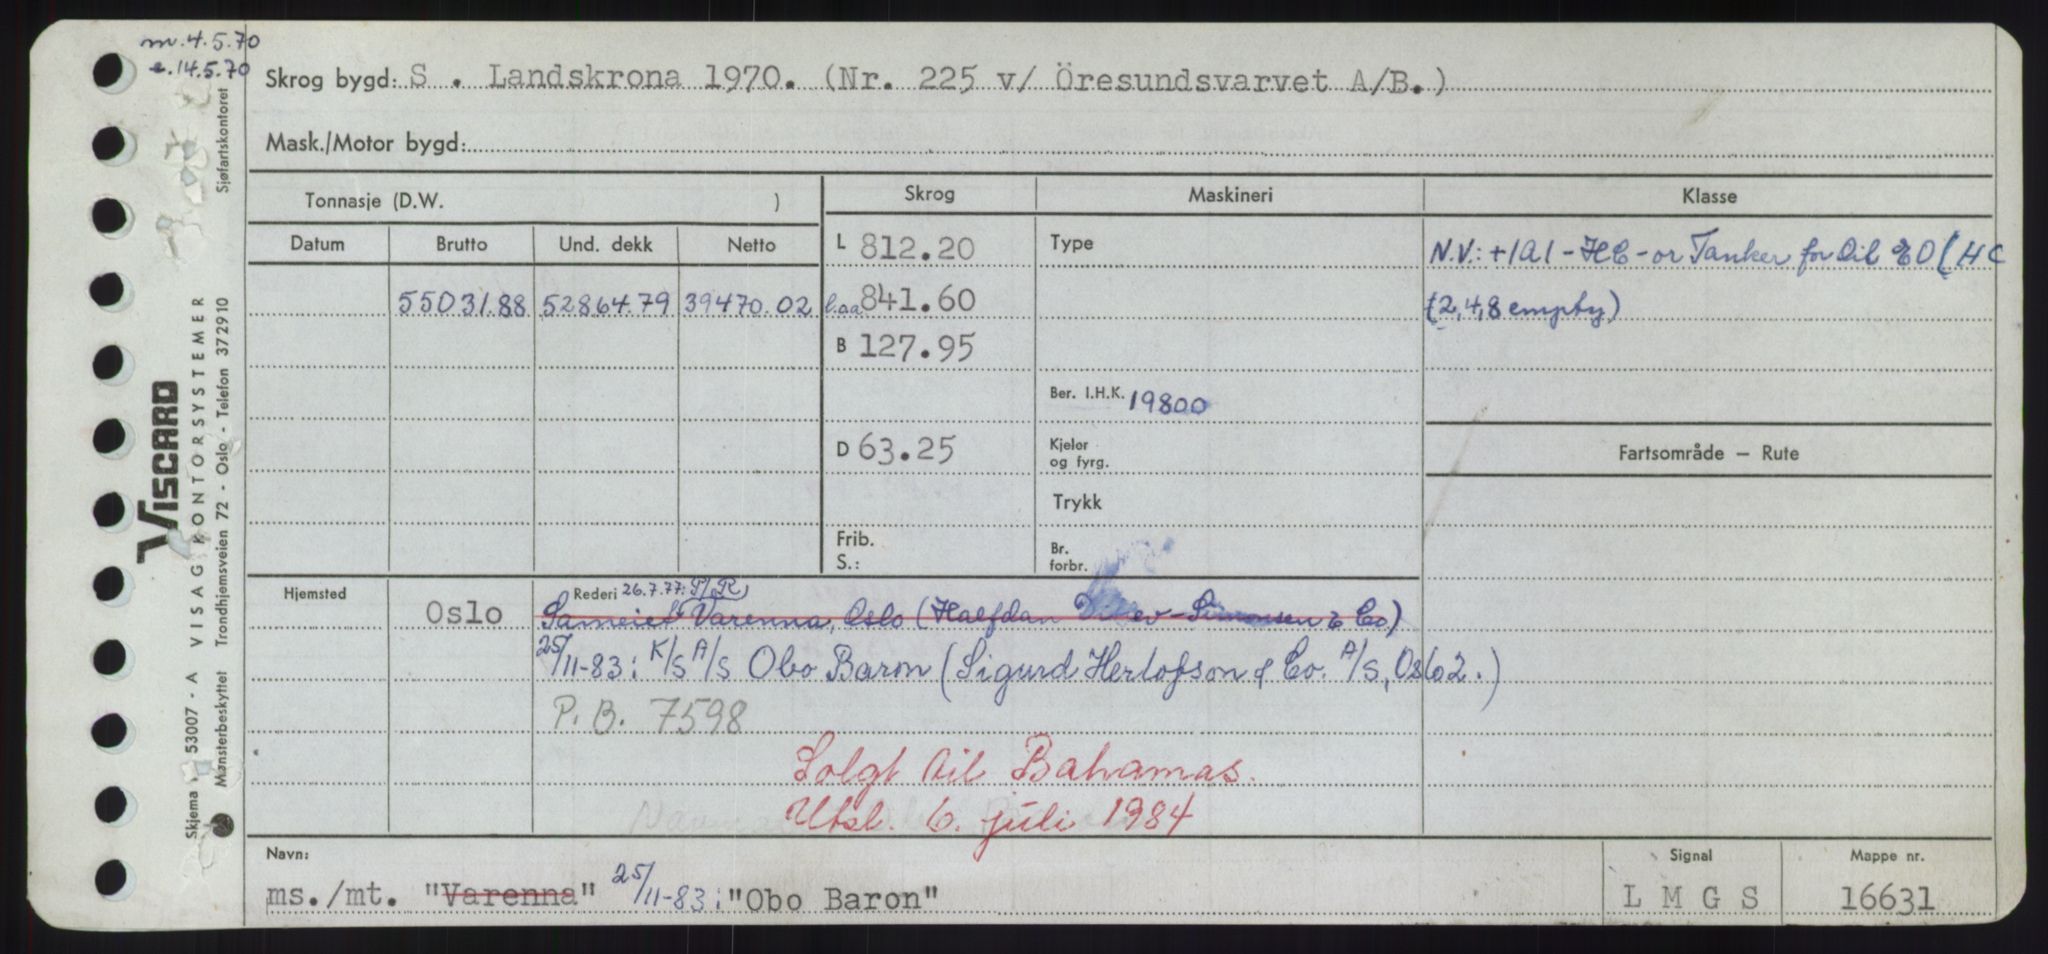 m.4.5.70
e.14.5.70
Skrog bygd: S . Landskrona 1970. (Nr. 225 v/ Öresundsvarvet A/B.)
Mask./Motor bygd:
Tonnasje (D.W. )
Skrog
Maskineri
Klasse
Datum Brutto Und. dekk Netto
L 812.20
Type
N.V.: +1A1 - HC - or Tanker for Oil & O (HC
55031.88 52864.79 39470.02
l.oa 841.60
(2,4,8 empty)
B 127.95
Ber. I.H.K. 19800
D 63.25
Kjeler
og fyrg.
Fartsområde — Rute
Trykk
Frib.
S.:
Br.
forbr.
Hjemsted
Rederi 26.7.77: P/R
Oslo
Sameiet Varenna, Oslo (Halfdan Ditlev-Simonsen & Co)
25/11-83: K/S A/S Obo Baron (Sigurd Herlofson & Co. A/S, Oslo 2.)
P.B. 7598
Solgt til Bahamas.
Utsl. 6. juli 1984
Navn:
ms./mt. "Varenna" 25/11-83: "Obo Baron"
Signal
L M G S
Mappe nr.
16631
VISCARD
Skjema 53007 - A VISAG KONTORSYSTEMER
Mønsterbeskyttet Trondhjemsveien 72 - Oslo - Telefon 372910 Sjøfartskontoret